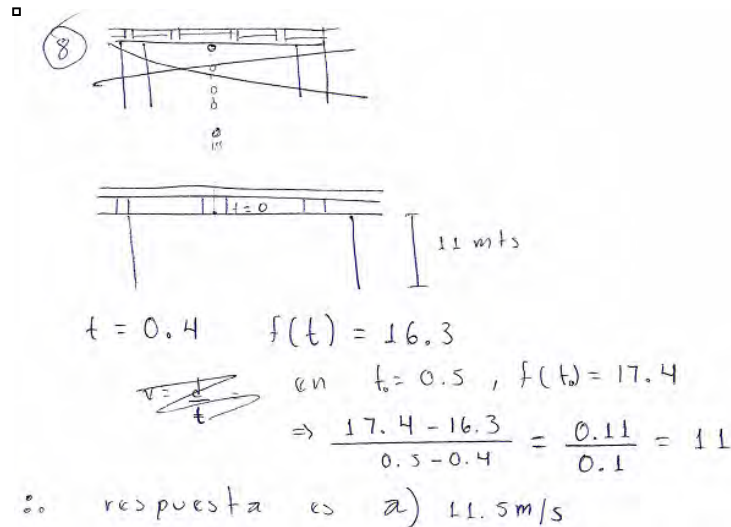 8
t=0
11 mts
t = 0.4 f(t) = 16.3
v = d/t =
en t₀ = 0.5 , f(t₀) = 17.4
⇒ (17.4 - 16.3)/(0.5 - 0.4) = 0.11/0.1 = 11
∴ respuesta es a) 11.5m/s